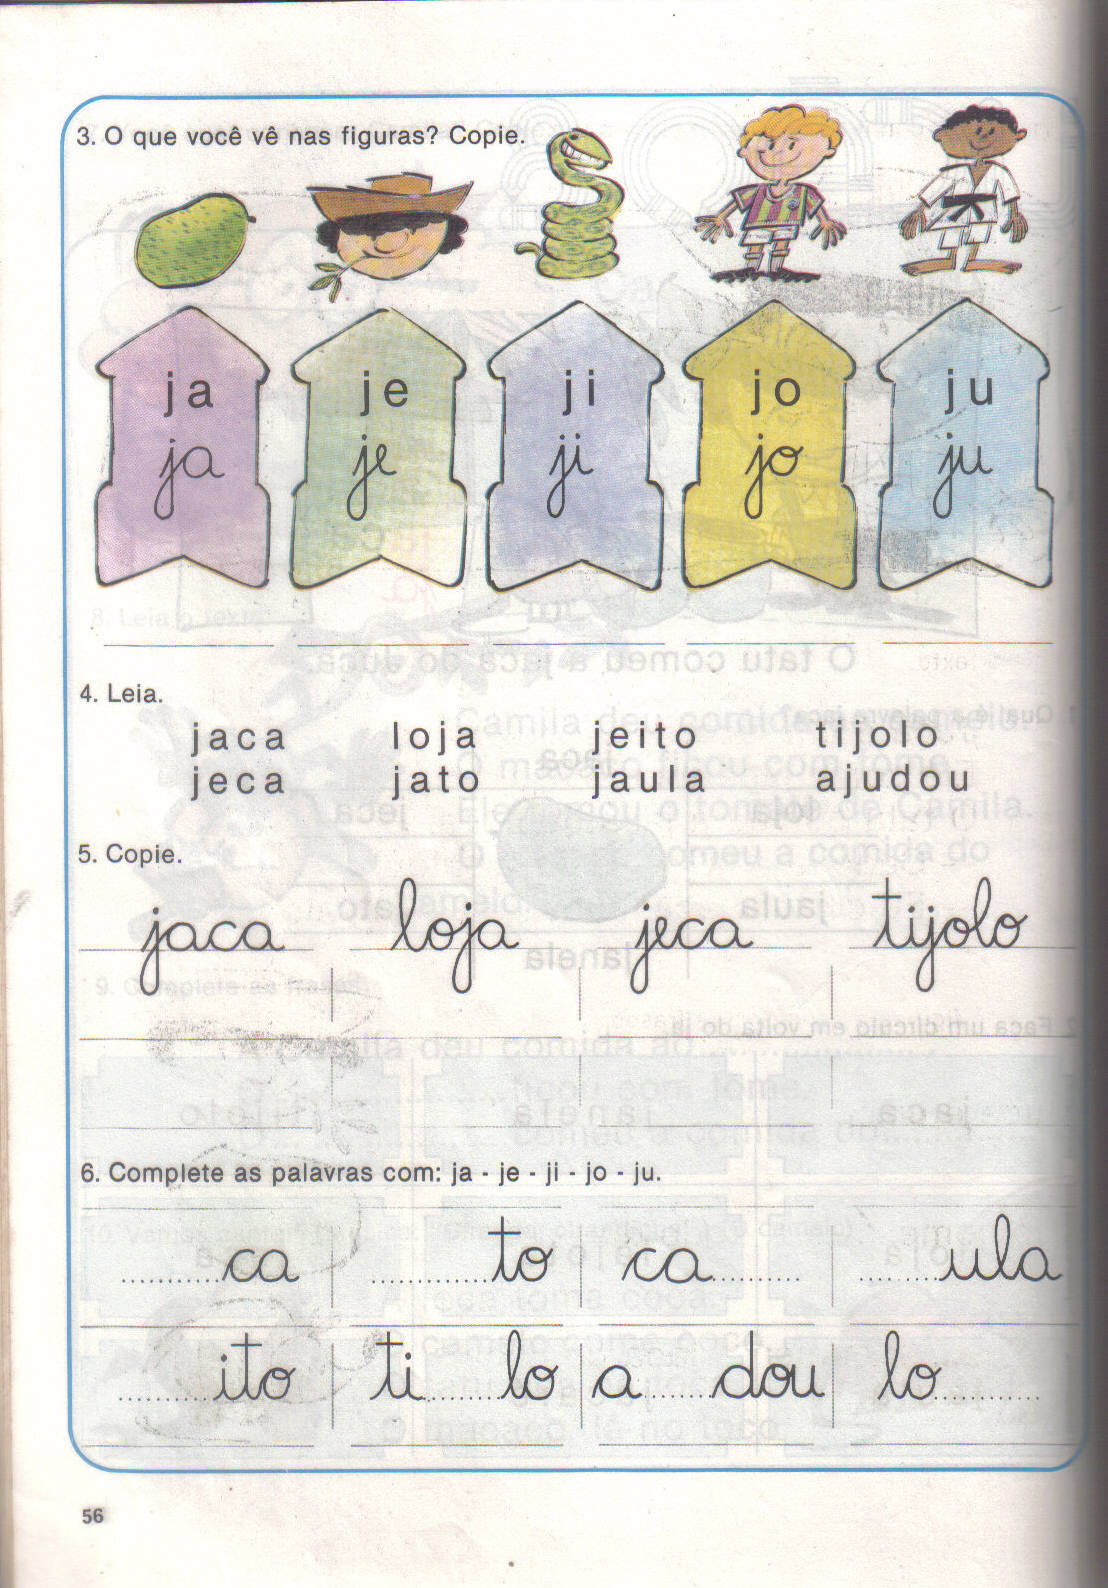 3. O que você vê nas figuras? Copie.
ja je ji jo ju
ja je ji jo ju
4. Leia.
jaca loja jeito tijolo
jeca jato jaula ajudou
5. Copie.
jaca loja jeca tijolo
6. Complete as palavras com: ja - je - ji - jo - ju.
............ca ............to ca............ ............ula
............ito ti............lo a............dou lo............
56